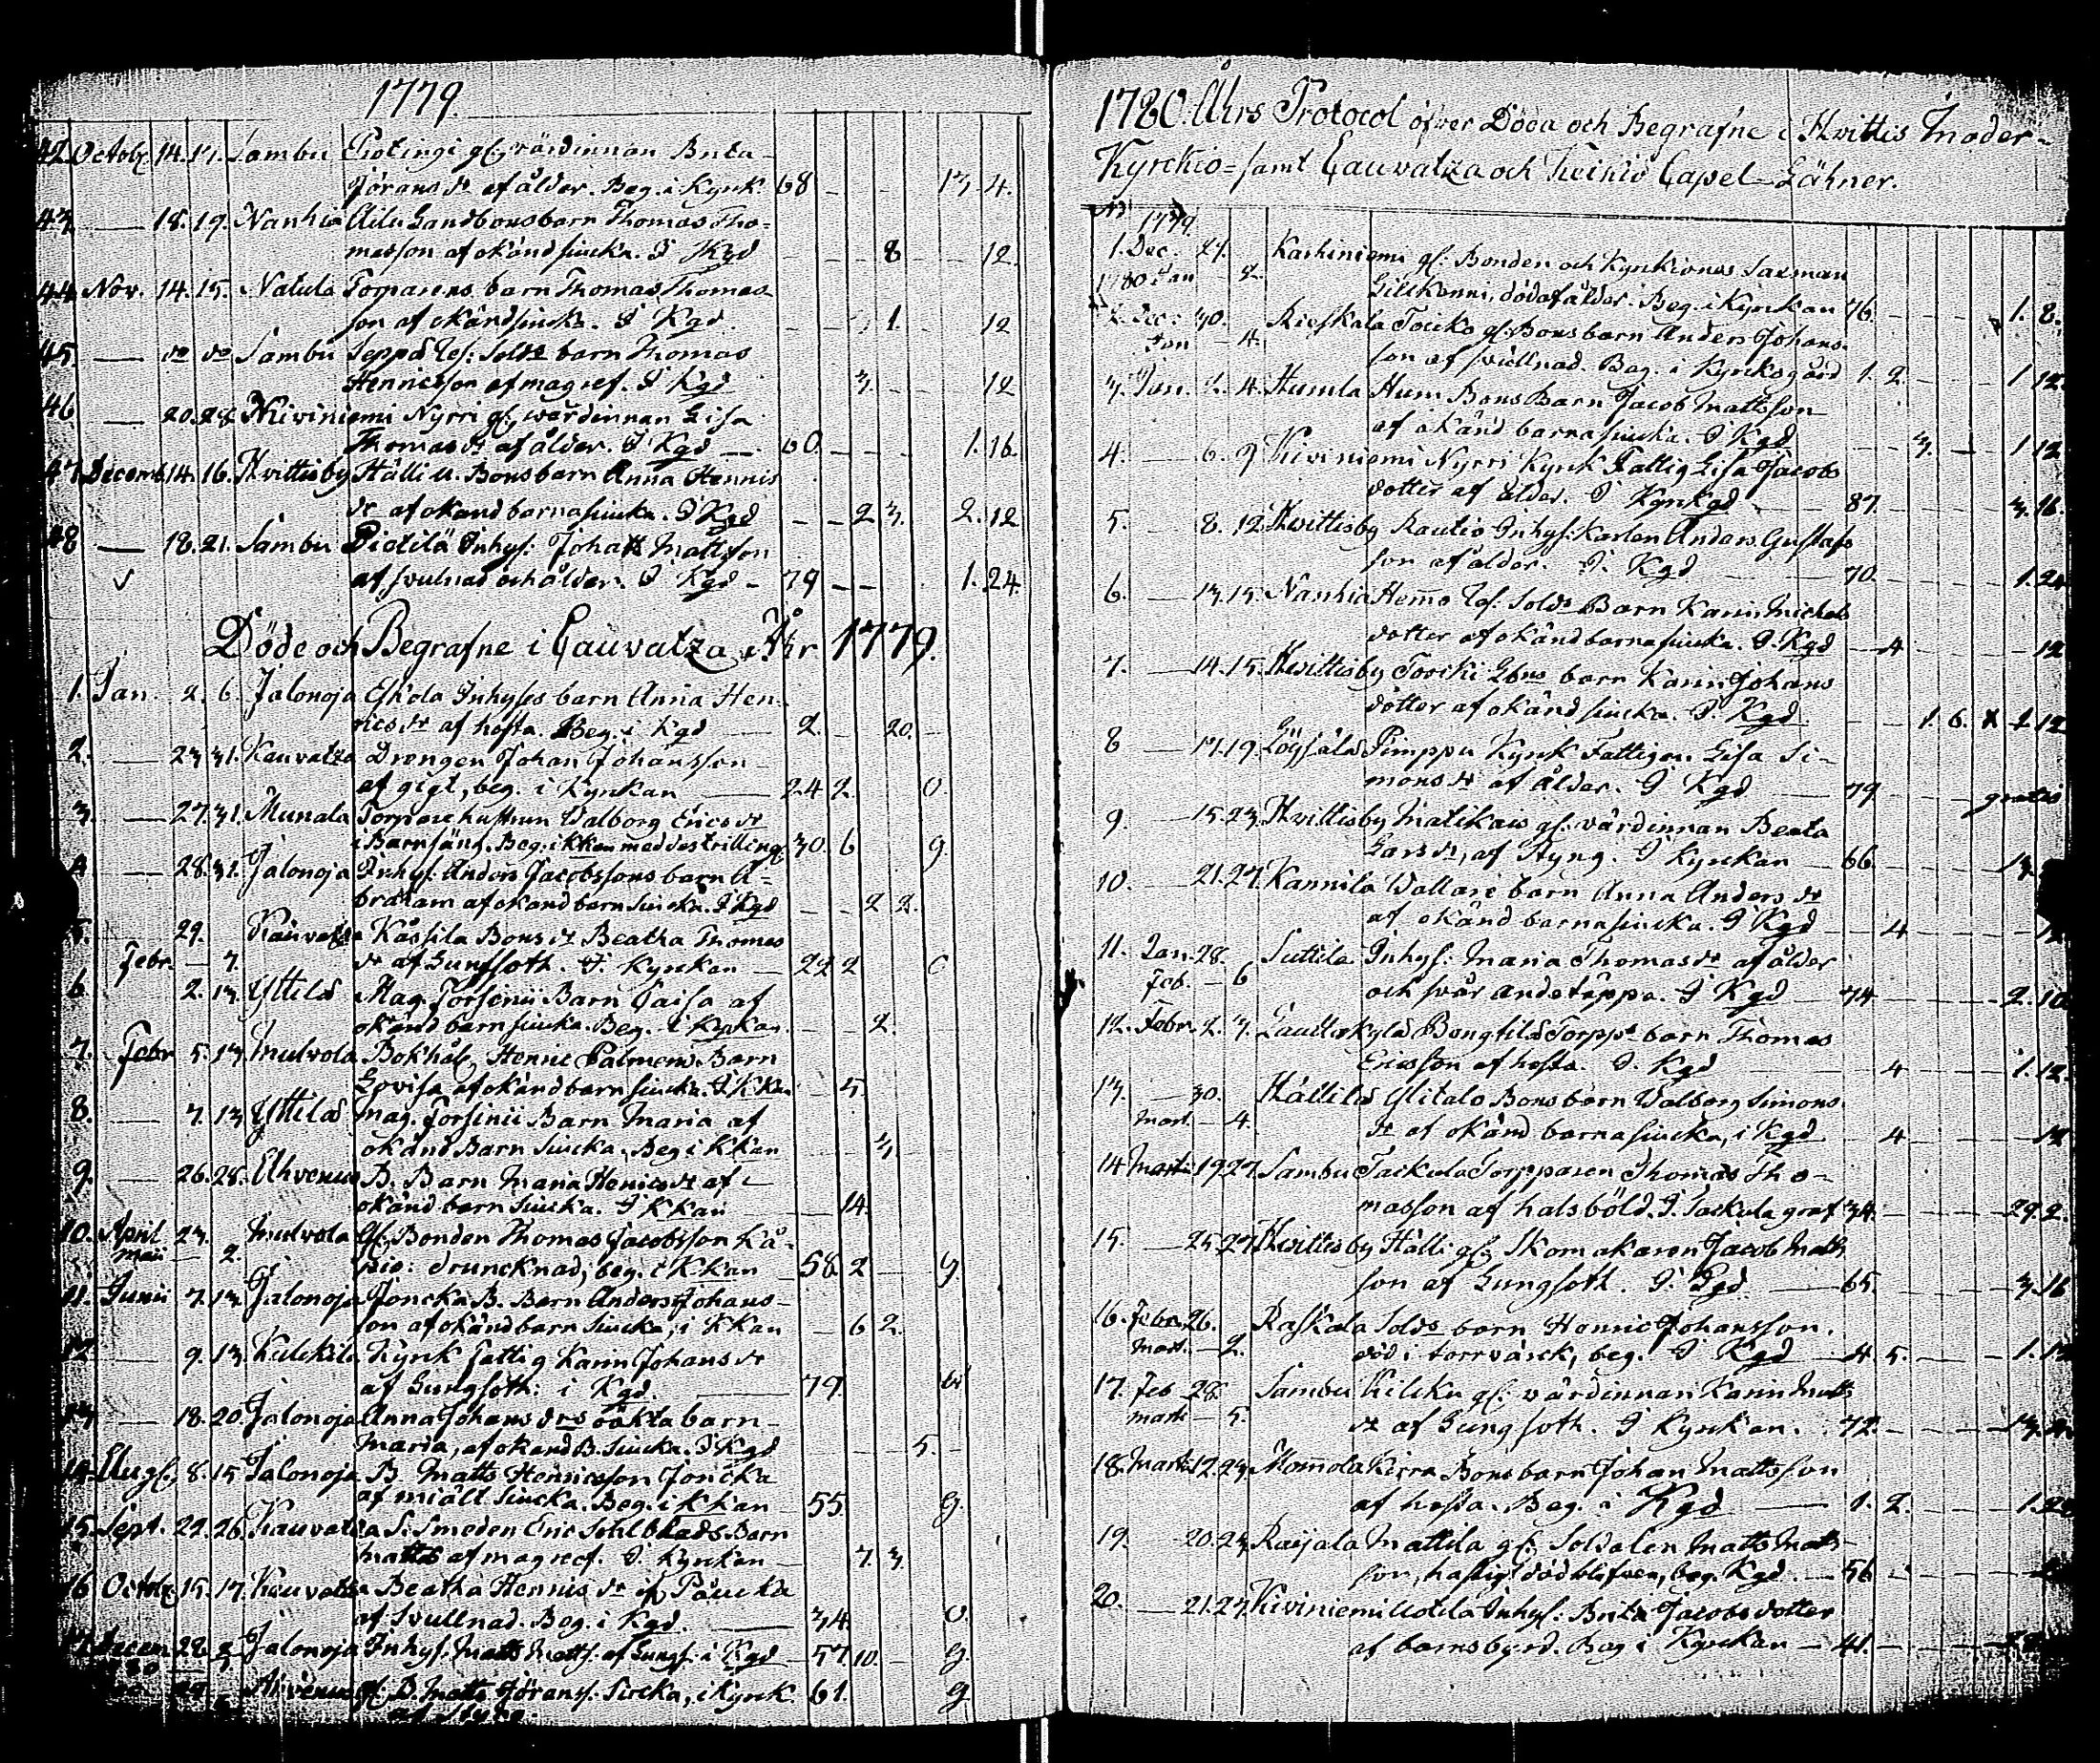 1779.
42. Octob. 14. 17. Sambu Gl. värdinnan Brita
Jörans dr af ålder. Beg. i Kyrk 68 - - - 13. 4.
43. — 18. 19. Nanhia Landbonsbarn Thomas Tho=
masson af okänd siucka. I Kgd - - 8 - - 12.
44. Nov. 14. 15. Natula Torparens barn Thomas Thomas
son af okänd siucka. I Kgd 1. - 12
45. — do do Sambu Seppä Sold barn Thomas
Henricsson af magref. I Kgd 3. - - 12
46 — 20. 28. Kiviniemi Nyrri gl. wärdinnan Lisa
Thomas dr af ålder. I Kgd — 60. - - - 1. 16.
47. Decemb. 14. 16. Hvittisby Hälli u. Bonsbarn Anna Henrics
dr af okänd barnasiucka. I Kgd - - 2 3. 2. 12
48 — 18. 21. Sambu Pietilä Inhys: Johan Mattsson
af svulnad och ålder. I Kgd - 79 - - 1. 24.
Döde och Begrafne i Cauvatza Åhr 1779.
1. Jan. 2. 6. Jalonoja Eskola Inhyses barn Anna Hen-
rics dr af hosta. Beg. i Kgd — 2. 20. -
2. — 23 31. Kauvatza Drengen Johan Johansson
af gigt, beg. i Kyrkan — 24 2. 0
3. — 27. 31. Munala Torpare hustrun Valborg Erics dr
i Barnsäng. Beg. i KKan med des trilling 30. 6 g.
4 — 28. 31. Jalonoja Inhys. Anders Jacobssons barn A=
braham af okänd barn siucka. I Kgd - - 2 2.
5. 29. Kauvatza Kässilä Bons dr Beatha Thomas
Febr. — 7. dr af Lungsoth. I Kyrckan — 22 2 0
6. 2. 13. Yttilä Mag. Forsenii Barn Caisa af
okänd barn siucka. Beg. i Kyrkan. - - 2.
7. Febr 5. 13. Mulvola Bokhål. Henric Palmens Barn
Lovisa af okänd barn siucka. I KKan - 5.
8. — 7. 13 Yttilä Mag. Forsenii Barn Maria af
okänd Barn siucka, Beg i KKan 3.
9. — 26. 28. Ahvenus B. Barn Maria Henrics dr af
okänd barn siucka. I KKan — 14.
10. April 23. Mulvola Gl. Bonden Thomas Jacobsson
Maii — 2. druncknad, beg. i KKan 58. 2 g.
11. Junii 7. 13. Jalonoja Joncka B. Barn Anders Johans-
son af okänd barn siucka, i KKan - 6 2.
12. — 9. 13. Kulckila Kyrk fattig Karin Johans dr
af Lungsoth: i Kgd. — 79.
13. — 18. 20. Jalonoja Anna Johans drs oäkta barn
Maria, af okänd B. siucka. I Kgd - - 5. -
14. Augs. 8. 15 Jalonoja B. Matts Henricsson Joncka
af miält siucka. Beg. i KKan — 55. g.
15. Sept. 22. 26. Kauvatza S. Smeden Eric Barn
Matts af magref. I Kyrckan — 7. 3
16 Octob. 15. 17. Kauvatza Beatha Henrics dr
af Svullnad. Beg. i Kgd. — 34. 0.
17. Decem 28. Jalonoja Inhys. Matts Matts. af Lungs. i Kgd — 57 10. - g.
Ahvenus gl. B. Matts Jörans. Siucka, i Kyrk. 61. g
1780. Åhrs Protocol öfver Döda och Begrafne i Hvittis Moder-
Kyrckio- samt Cauvatza och Keikiö Capel-Gähner.
No 1779
1. Dec. 27. Karhiniemi gl. Bonden och Kyrkiones Saxman
1780 Jan 2. död af ålder. Beg. i Kyrckan 76. - - - 1. 8.
2. Dec. 30. Rieskala Tociko gl. Bonsbarn Anders Johans
Jan - 4. son af svullnad. Beg. i Kyrckogård 1. 2. - - 1 12.
3. Jan. 2. 4. Humla Hum Bons Barn Jacob Mattsson
af okänd barnasiucka. I Kgd - - 3. - 1 12
4. — 6. 9. Kiviniemi Nyrri Kyrk Fattig Lisa Jacobs
dotter af ålder. I Kyrkgd — 87. - - - 3. 16.
5. — 8. 12. Hvittisby Rautio Inhys: Karlen Anders Gustafs
son af ålder. I. Kgd — 70. - - - 1. 24
6. — 13. 15. Nanhia Hemo Sold Barn Karin Michels
dotter af okänd barnasiucka. I. Kgd — 4 - - - 12
7. — 14. 15. Hvittisby Torcki Lbns barn Karin Johans
dotter af okänd siucka. I. Kgd. 1. 6. 1 12
8 — 17. 19. Löysälä Pimppu Kyrk Fattigen Lisa Si-
mons dr af ålder. I Kgd — 79. - - - gratis
9. — 15. 23. Hvittisby Matikais gl. värdinnan Beata
Lars dr, af styng. I Kyrckan — 66 - - - 13.
10. — 21. 27. Kannila Vallare barn Anna Anders dr
af okänd barnasiucka. I Kgd — 4 - - - 12
11. Jan. 28. Suttila Inhys: Maria Thomas dr af ålder
Feb. — 6 och svår andetäppa. I Kgd — 74 - - - 2. 10.
12. Febr. 2. 3. Bengtilä Torpp barn Thomas
Ericsson af hosta. I. Kgd — 4 - - - 1. 12.
13. — 30. Hällilä Ylitalo Bonsbarn Valborg Simons
Mart. — 4. dr af okänd barnasiucka, i Kgd — 4 - - - 12
14 Marti 19 27. Sambu Tackula Torpparen Thomas Tho-
masson af halsböld. I. Tackula graf 34. - - - 29. 2.
15. — 25. 27. Hvittisby Hälli gl. Skomakaren Jacob Matts
son af Lungsoth. I. Kgd — 65. - - - 3. 16
16. Febr. 26. Raskala Sold barn Henric Johansson,
Mart. — 2. död i torrvärck, beg. I Kgd — 4. 5. - - - 1. 12
17. Feb 28. Sambu Kilcku gl. värdinnan Karin Matts
Mart — 5. dr af Lungsoth. I Kyrckan. 72. - - - 13.
18. Mart. 12. 23. Mommola Kirra Bonsbarn Johan Mattsson
af hosta. Beg. i Kgd — 1. 2. - - -
19. — 20. 23. Raijala Mattila gl. Soldaten Matts Matts-
son, hastigt död blifven, beg. Kgd. — 56 - - -
20. — 21. 27. Kiviniemi Uotila Inhys: Brita Jacobs dotter
af barnsbyrd. Beg i Kyrckan — 41. - - -